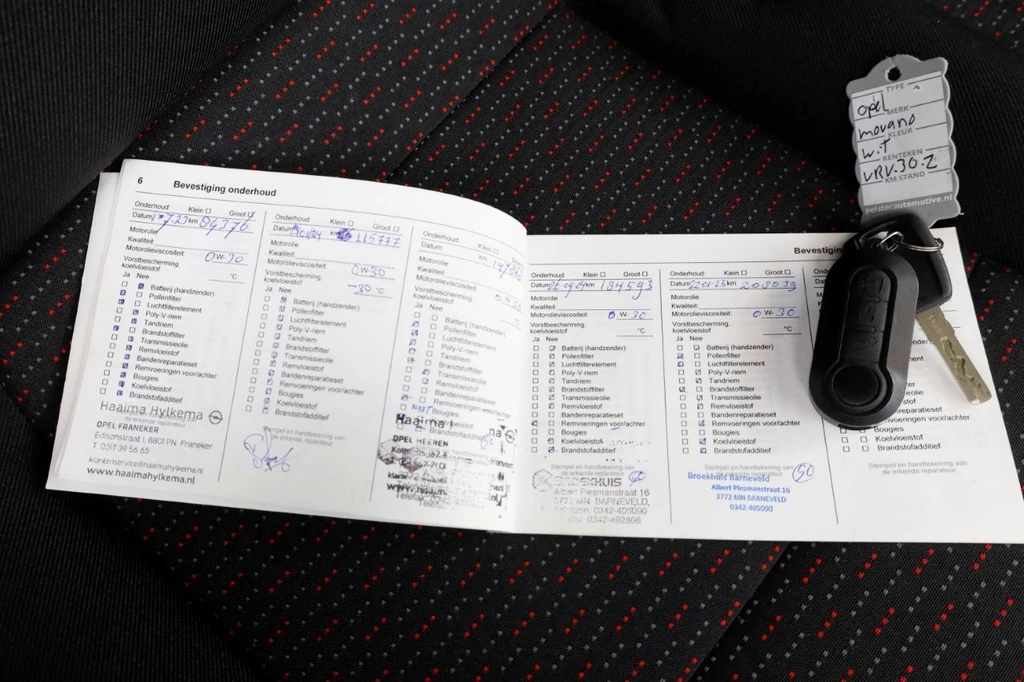 TYPE
opel
MERK
movano
KLEUR
w.t
KENTEKEN
VRV.30.Z
KM STAND
pelsterautomotive.nl
6 Bevestiging onderhoud
Onderhoud: Klein Groot
Datum km
Motorolie
Kwaliteit:
Motorolieviscositeit: 0W-30
Vorstbescherming,
koelvloeistof °C
Ja Nee
Batterij (handzender)
Pollenfilter
Luchtfilterelement
Poly-V-riem
Tandriem
Brandstoffilter
Transmissieolie
Remvloeistof
Bandenreparatieset
Remvoeringen voor/achter
Bougies
Koelvloeistof
Brandstofadditief
Haaima Hylkema
de erkende reparateur
OPEL FRANEKER
Edisonstraat 1, 8801 PN Franeker
T. 0517 39 56 65
klantenservice@haaimahylkema.nl
www.haaimahylkema.nl
Onderhoud: Klein Groot
Datum km 115777
Motorolie
Kwaliteit:
Motorolieviscositeit:
0W-30
Vorstbescherming,
koelvloeistof -30 °C
Ja Nee
Batterij (handzender)
Pollenfilter
Luchtfilterelement
Poly-V-riem
Tandriem
Brandstoffilter
Transmissieolie
Remvloeistof
Bandenreparatieset
Remvoeringen voor/achter
Bougies
Koelvloeistof
Brandstofadditief
Stempel en handtekening van
de erkende reparateur
Onderhoud: Klein Groot
Datum km
Motorolie
Kwaliteit:
Motorolieviscositeit:
Vorstbescherming,
koelvloeistof
Ja Nee
Batterij (handzender)
Pollenfilter
Luchtfilterelement
Poly-V-riem
Tandriem
Brandstoffilter
Transmissieolie
Remvloeistof
Bandenreparatieset
Remvoeringen voor/achter
Bougies
Koelvloeistof
Brandstofadditief
Haaima
OPEL HEEREN
Onderhoud: Klein Groot
Datum 26-09-24 km 184593
Motorolie
Kwaliteit:
Motorolieviscositeit: 0 W- 30
Vorstbescherming,
koelvloeistof °C
Ja Nee
Batterij (handzender)
Pollenfilter
Luchtfilterelement
Poly-V-riem
Tandriem
Brandstoffilter
Transmissieolie
Remvloeistof
Bandenreparatieset
Remvoeringen voor/achter
Bougies
Koelvloeistof
Brandstofadditief
Stempel en handtekening van
de erkende reparateur
BROEKHUIS
Albert Plesmanstraat 16
3772 MN BARNEVELD,
Telefoon: 0342-405090
Fax: 0342-492866
Onderhoud: Klein Groot
Datum 22-01-25 km 208039
Motorolie
Kwaliteit:
Motorolieviscositeit: 0 W- 30
Vorstbescherming,
koelvloeistof °C
Ja Nee
Batterij (handzender)
Pollenfilter
Luchtfilterelement
Poly-V-riem
Tandriem
Brandstoffilter
Transmissieolie
Remvloeistof
Bandenreparatieset
Remvoeringen voor/achter
Bougies
Koelvloeistof
Brandstofadditief
Stempel en handtekening van
de erkende reparateur
Broekhuis Barneveld
Albert Plesmanstraat 16
3772 MN BARNEVELD
0342-405090
Bevestiging
Onderhoud:
Datum
Motorolie
Kwaliteit:
voor/achter
Bougies
Koelvloeistof
Brandstofadditief
Stempel en handtekening van
de erkende reparateur